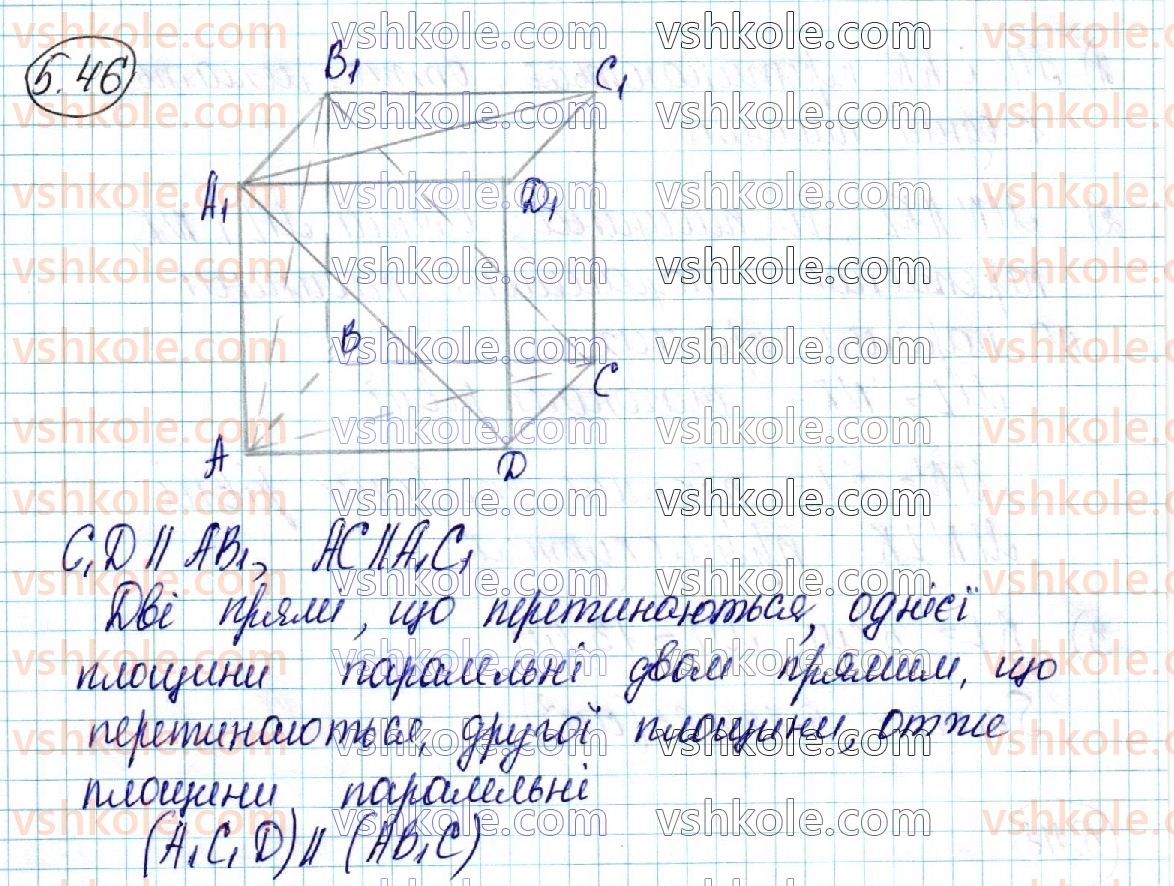 5.46
B₁ C₁
A₁ D₁
B
C
A D
C₁D ∥ AB₁, AC ∥ A₁C₁
Дві прямі, що перетинаються, однієї
площини паралельні двом прямим, що
перетинаються, другої площини, отже
площини паралельні
(A₁C₁D) ∥ (AB₁C)
vshkole.com